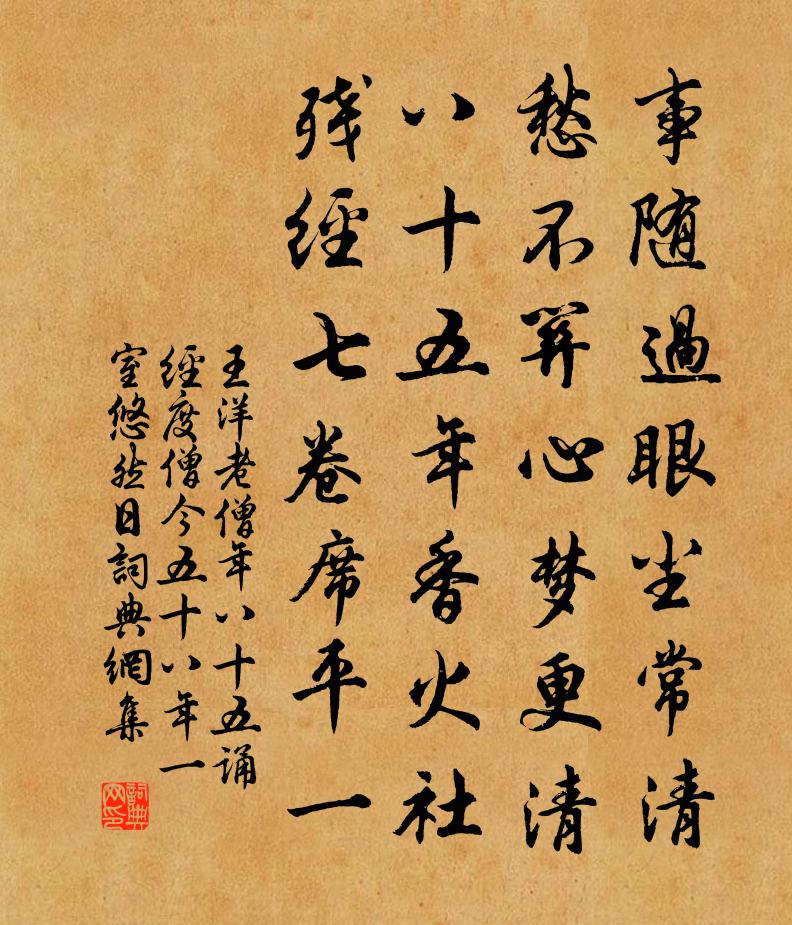 事随過眼尘常清
愁不關心梦更清
八十五年香火社
残經七卷席平一
王洋老僧年八十五誦
經度僧今五十八年一
室悠然日詞典網集
詞典
网印